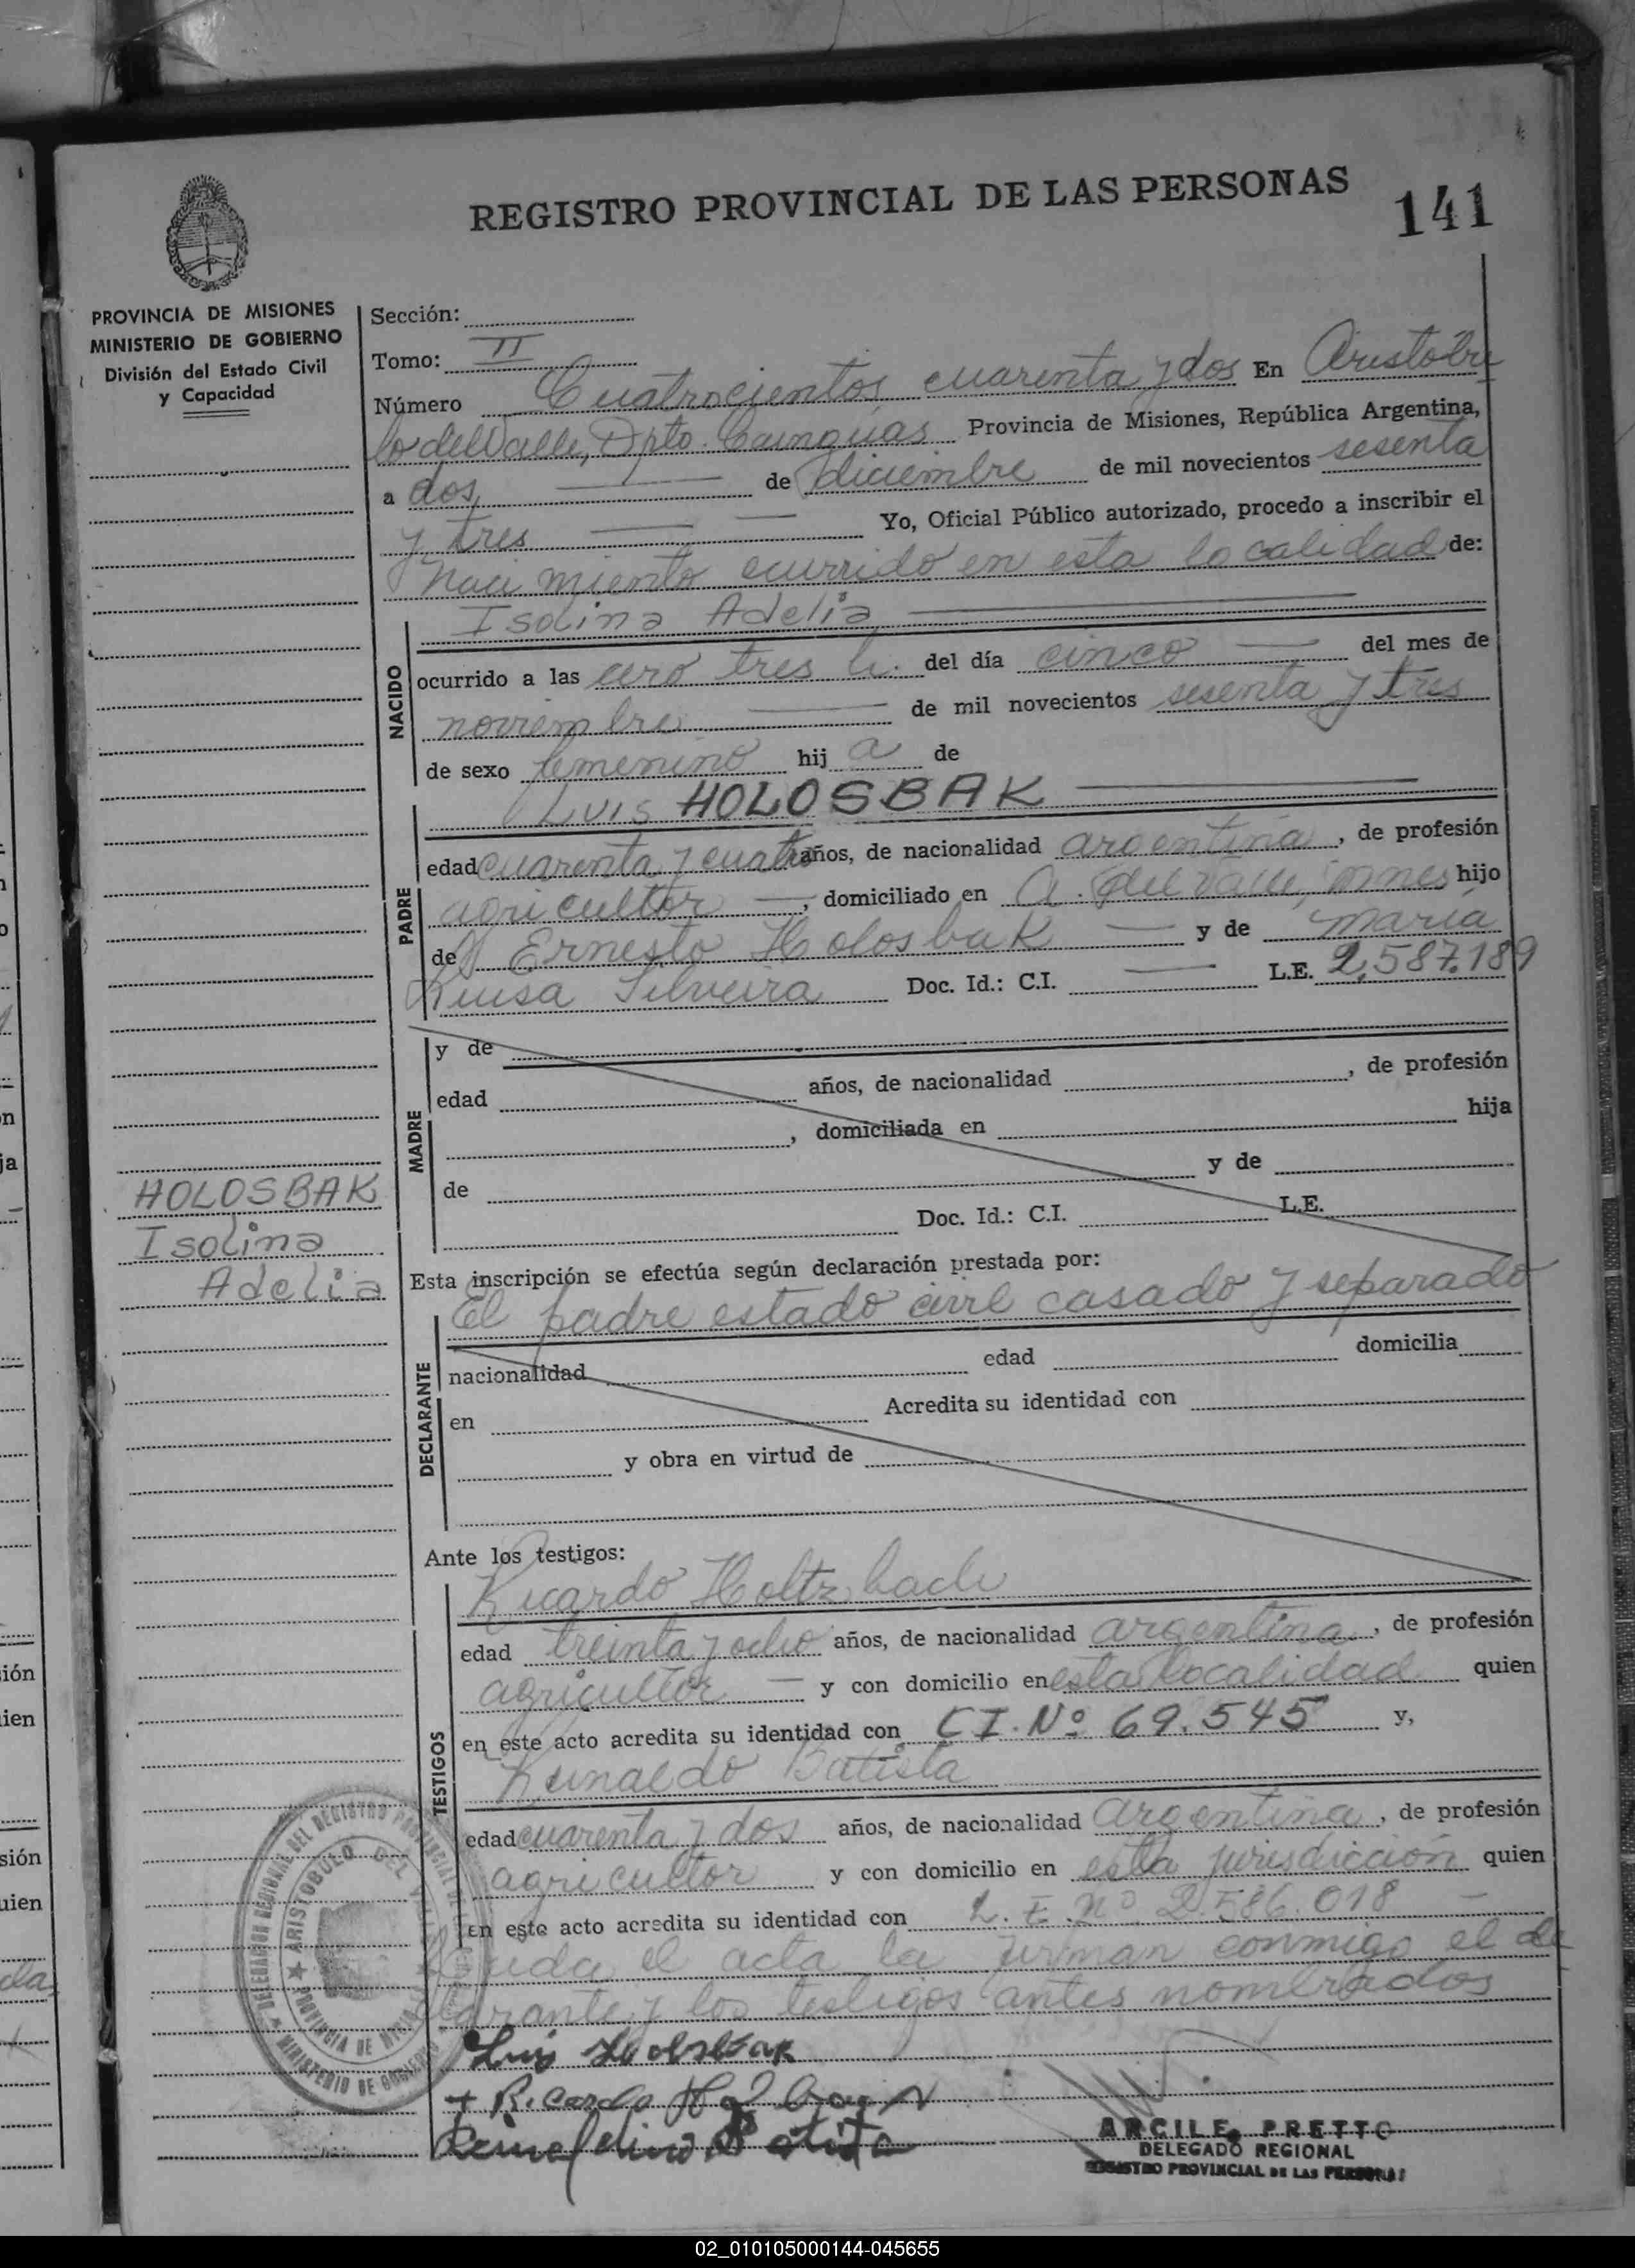 REGISTRO PROVINCIAL DE LAS PERSONAS
141
PROVINCIA DE MISIONES
MINISTERIO DE GOBIERNO
División del Estado Civil
y Capacidad
Sección:
Tomo: II
Número Cuatrocientos cuarenta y dos En Aristóbu
lo del Valle, Dpto. Cainguás Provincia de Misiones, República Argentina,
a dos de diciembre de mil novecientos sesenta
y tres Yo, Oficial Público autorizado, procedo a inscribir el
nacimiento ocurrido en esta localidad de:
NACIDO
Isolina Adelia
ocurrido a las cero tres h. del día cinco del mes de
noviembre de mil novecientos sesenta y tres
de sexo femenino hij a de
PADRE
Luis HOLOSBAK
edad cuarenta y cuatro años, de nacionalidad argentina, de profesión
agricultor, domiciliado en A. del Valle, mnes hijo
de Ernesto Holosbak y de María
Luisa Silveira Doc. Id.: C.I. L.E. 2,587.189
MADRE
y de
edad años, de nacionalidad , de profesión
, domiciliada en hija
de y de
Doc. Id.: C.I. L.E.
HOLOSBAK
Isolina
Adelia
Esta inscripción se efectúa según declaración prestada por:
DECLARANTE
El padre estado civil casado y separado
nacionalidad edad domicilia
en Acredita su identidad con
y obra en virtud de
Ante los testigos:
TESTIGOS
Ricardo Holtzbach
edad treinta y ocho años, de nacionalidad argentina, de profesión
agricultor y con domicilio en esta localidad quien
en este acto acredita su identidad con C I. Nº 69.545 y,
Reinaldo Batista
edad cuarenta y dos años, de nacionalidad argentina, de profesión
agricultor y con domicilio en esta jurisdicción quien
en este acto acredita su identidad con L. E. nº 2.586.018
el acta la firman conmigo el de
clarante y los testigos antes nombrados
Luis Holosbak
Ricardo
ARISTOBULO DEL
PROVINCIA DE
MINISTERIO DE GOBIERNO
DELEGACION REGIONAL DEL REGISTRO PROVINCIAL DE
ARCILE PRETTO
DELEGADO REGIONAL
REGISTRO PROVINCIAL DE LAS PERSONAS
02_010105000144-045655